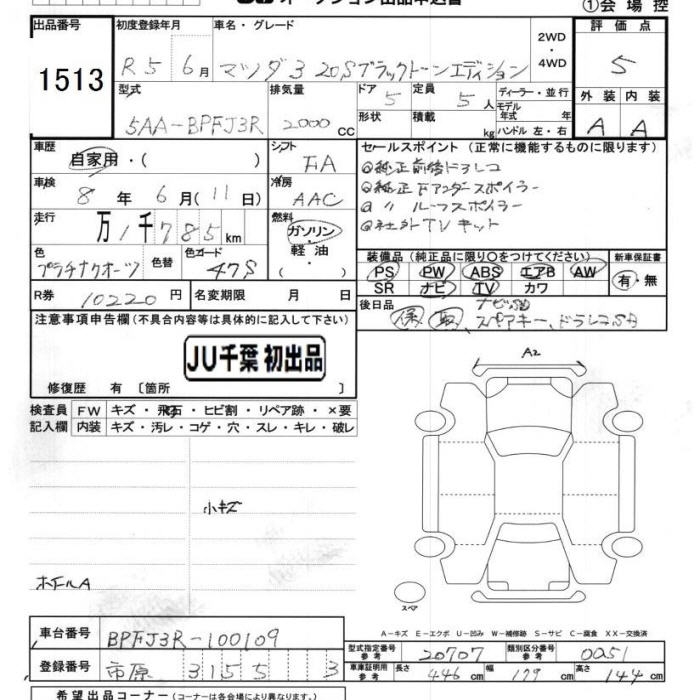 ①会場控
出品番号 初度登録年月 車名・グレード 評価点
1513 R5 6月 マツダ3 20Sブラックトーンエディション 2WD・4WD 5
型式 排気量 ドア 5 定員 5人 ディーラー・並行 外装 内装
5AA-BPFJ3R 2000cc 形状 積載 kg モデル年式 年 ハンドル 左・右 A A
車歴 シフト セールスポイント(正常に機能するものに限ります)
自家用・( ) FA ◎純正前後ドラレコ
車検 冷房 ◎純正アンダースポイラー
8年 6月(11日) AAC ◎〃 ルーフスポイラー
走行 燃料 ◎社外TVキット
万1千785km ガソリン・軽油・( )
色 色替 色コード 装備品(純正品に限り○をつけてください) 新車保証書
プラチナクオーツ 47S PS PW ABS エアB AW 有・無
SR ナビ TV カワ
R券 10220円 名変期限 月 日 後日品 ナビSD
保 取 スペアキー、ドラレコSD
注意事項申告欄(不具合内容等は具体的に記入して下さい)
JU千葉 初出品
修復歴 有〔箇所 〕
A2
検査員 FW キズ・飛石・ヒビ割・リペア跡・×要
記入欄 内装 キズ・汚レ・コゲ・穴・スレ・キレ・破レ
小キズ
ホイールA
スペア
A-キズ E-エクボ U-凹み W-補修跡 S-サビ C-腐食 XX-交換済
車台番号 BPFJ3R-100109
登録番号 市原 3155 3
型式指定番号 参考 20707 類別区分番号 参考 0051
車庫証明用 参考 長さ 446cm 幅 179cm 高さ 144cm
希望出品コーナー(コーナーは各会場により異なります)